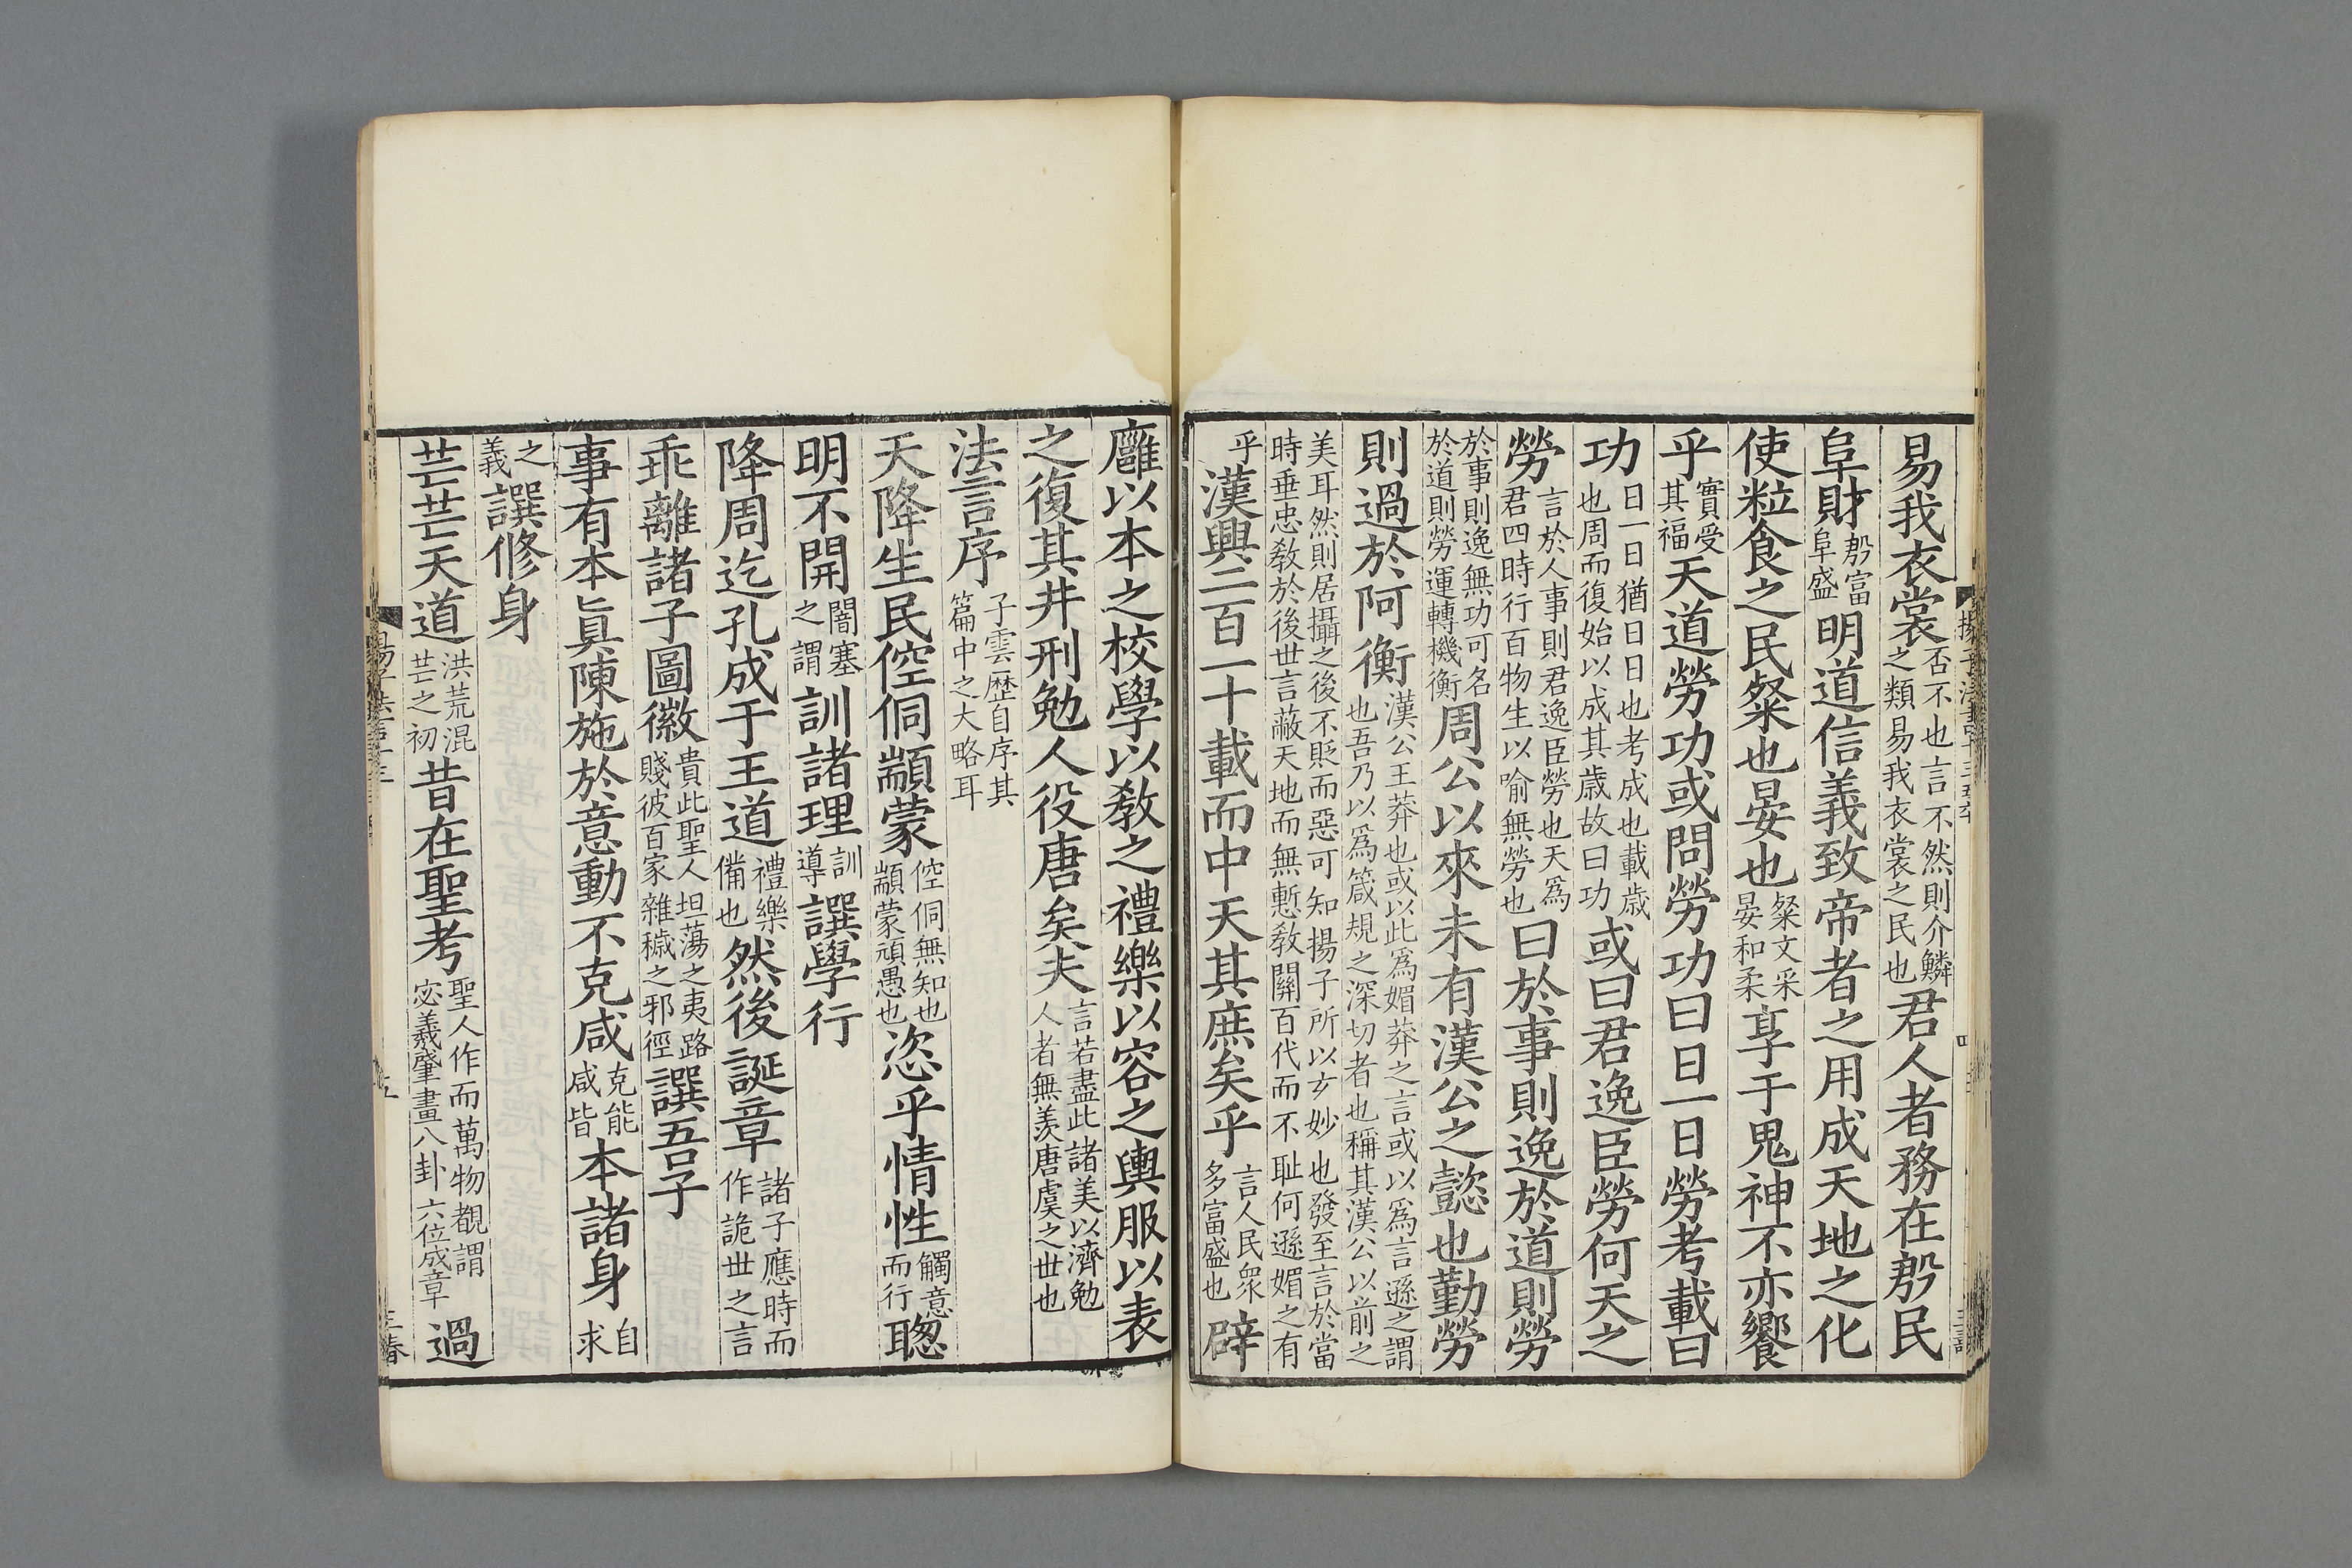 易我衣裳否不也言不然則介鱗之類易我衣裳之民也君人者務在殷民
阜財殷富阜盛明道信義致帝者之用成天地之化
使粒食之民粲也晏也粲文采晏和柔享于鬼神不亦饗
乎實受其福天道勞功或問勞功曰日一日勞考載曰
功日一日猶日日也考成也載歲也周而復始以成其歲故曰功或曰君逸臣勞何天之
勞言於人事則君逸臣勞也天爲君四時行百物生以喻無勞也曰於事則逸於道則勞
於事則逸無功可名於道則勞運轉機衡周公以來未有漢公之懿也勤勞
則過於阿衡漢公王莽也或以此爲媚莽之言或以爲言遜之謂也吾乃以爲箴規之深切者也稱其漢公以前之
美耳然則居攝之後不貶而惡可知揚子所以玄妙也發至言於當時垂忠敎於後世言蔽天地而無慙敎關百代而不耻何遜媚之有
乎漢興二百一十載而中天其庶矣乎言人民衆多富盛也辟
廱以本之校學以敎之禮樂以容之輿服以表
之復其井刑勉人役唐矣夫言若盡此諸美以濟勉人者無羨唐虞之世也
法言序子雲歷自序其篇中之大略耳
天降生民倥侗顓蒙倥侗無知也顓蒙頑愚也恣乎情性觸意而行聦
明不開闇塞之謂訓諸理訓導譔學行
降周迄孔成于王道禮樂備也然後誕章諸子應時而作詭世之言
乖離諸子圖徽貴此聖人坦蕩之夷路賤彼百家雜穢之邪徑譔吾子
事有本眞陳施於意動不克咸克能咸皆本諸身自求
之義譔修身
芒芒天道洪荒混芒之初昔在聖考聖人作而萬物覩謂宓羲肇畫八卦六位成章過